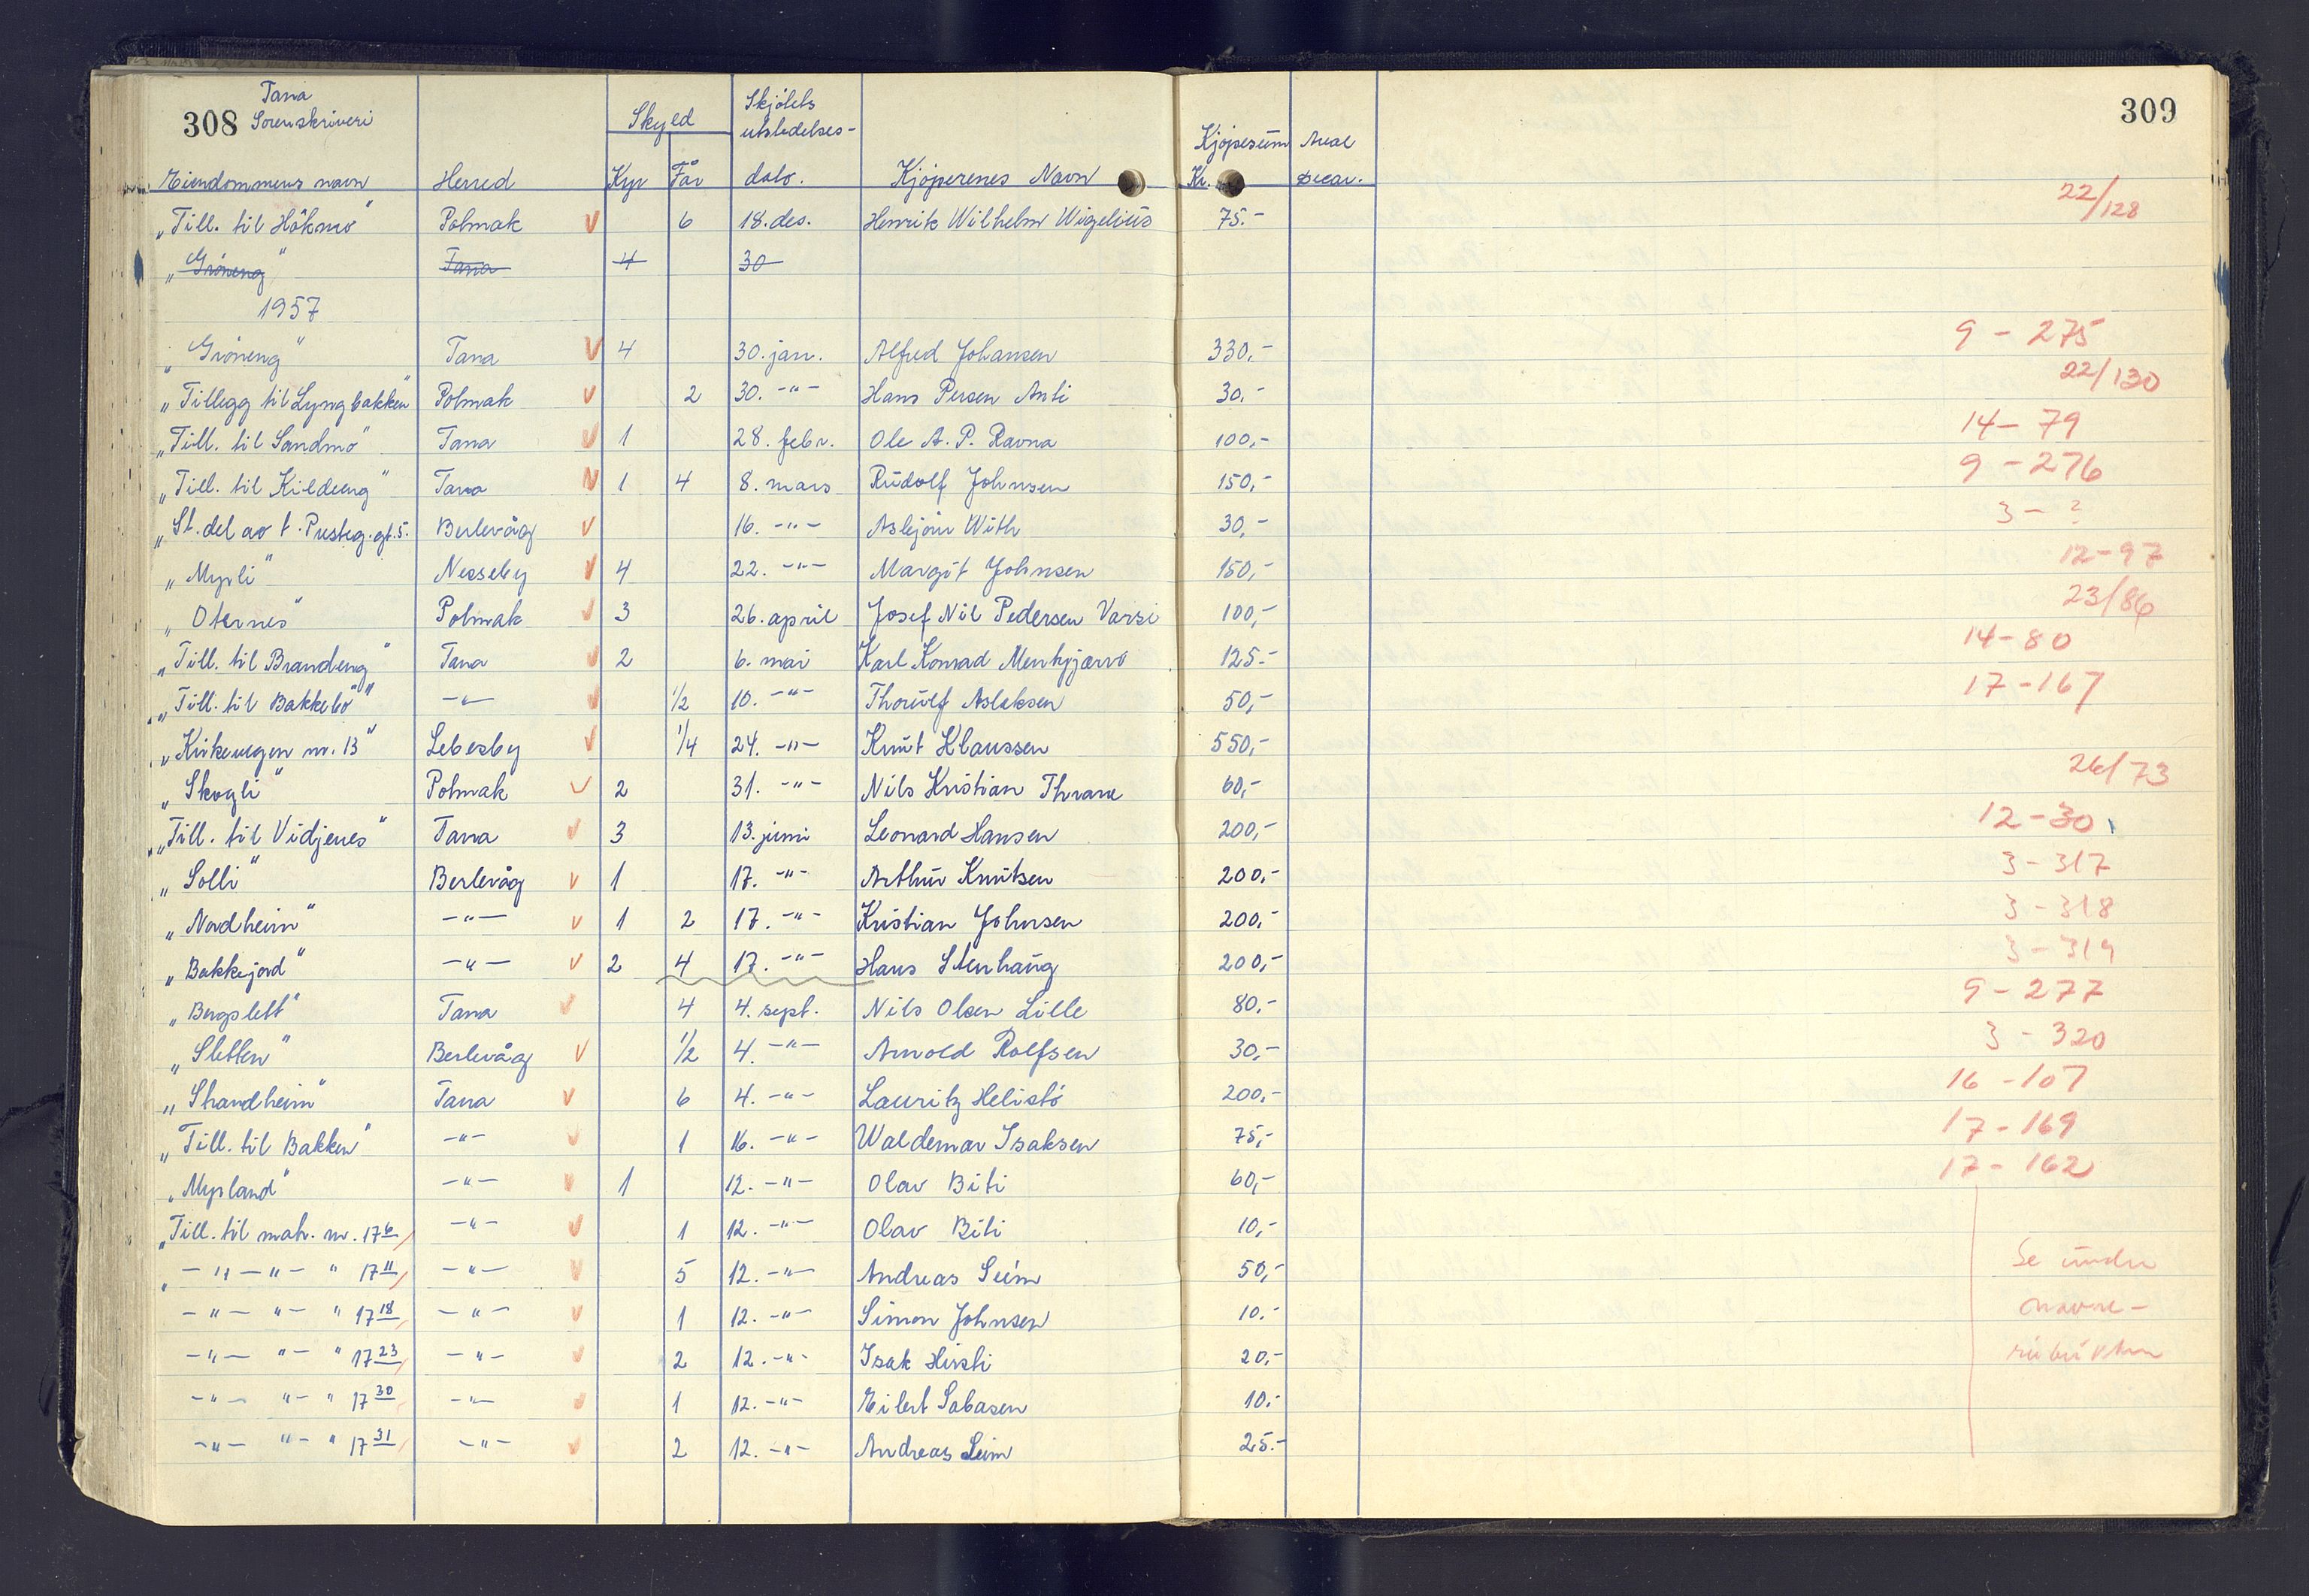 308 Tana Sorenskriveri 309
Eiendommens navn Herred Skyld Kyr Får Skjötets utstedelses- dato. Kjöperenes Navn Kjöpesum Kr. Areal Decar.
"Till. til Håkmo" Polmak V 6 18. des. Henrik Wilhelm Wigelius 75.- 22/128
"Gröneng" Tana 4 30
1957
"Gröneng" Tana V 4 30. jan. Alfred Johansen 330,- 9 - 275
"Tillegg til Lyngbakken" Polmak V 2 30. -"- Hans Persen Anti 30.- 22/130
"Till. til Sandmo" Tana V 1 28. febr. Ole A. P. Ravna 100,- 14 - 79
"Till. til Kildeeng" Tana V 1 4 8. mars Rudolf Johnsen 150,- 9 - 276
"St. del av t. Presteg. gt. 5. Berlevåg V 16. -"- Asbjörn With 30,- 3 - ?
"Myrli" Nesseby V 4 22. -"- Margit Johnsen 150,- 12-97
"Oternes" Polmak V 3 26. april Josef Nil Pedersen Varsi 100,- 23/86
"Till. til Brandeng" Tana V 2 6. mai Karl Konrad Menkyjærvi 125.- 14-80
"Till. til Bakkebö" -"- V 1/2 10. -"- Thorulf Aslaksen 50,- 17-167
"Kirkevegen nr. 13" Lebesby V 1/4 24. -"- Knut Klaussen 550,-
"Skogli" Polmak V 2 31. -"- Nils Kristian Thrane 60,- 26/73
"Till. til Vidjenes" Tana V 3 13. juni Leonard Hansen 200,- 12-30
"Solli" Berlevåg V 1 17. -"- Arthur Knutsen 200.- 3-317
"Nordheim" -"- V 1 2 17. -"- Kristian Johnsen 200,- 3-318
"Bakkejord" -"- V 2 4 17. -"- Hans Stenhaug 200,- 3-319
"Bergslett" Tana V 4 4. sept. Nils Olsen Lille 80.- 9-277
"Sletten" Berlevåg V 1/2 4. -"- Arnold Rolfsen 30,- 3-320
"Strandheim" Tana V 6 4. -"- Lauritz Helistö 200,- 16-107
"Till. til Bakken" -"- V 1 16. -"- Waldemar Isaksen 75,- 17-169
"Myrland" -"- V 1 12. -"- Olav Biti 60,- 17-162
"Till. til matr. nr. 17 6 -"- V 1 12. -"- Olav Biti 10,-
"-"- -"- " 17 11 -"- V 5 12. -"- Andreas Seim 50,- Se under
-"- "- " 17 18 -"- V 1 12. -"- Simon Johnsen 10.- navne-
-"- "- " 17 23 -"- V 2 12. -"- Isak Hirsti 20,- rubrikken
-"- "- " 17 30 -"- V 1 12. -"- Eilert Sabasen 10.-
-"- "- " 17 31 -"- V 2 12. -"- Andreas Seim 25.-